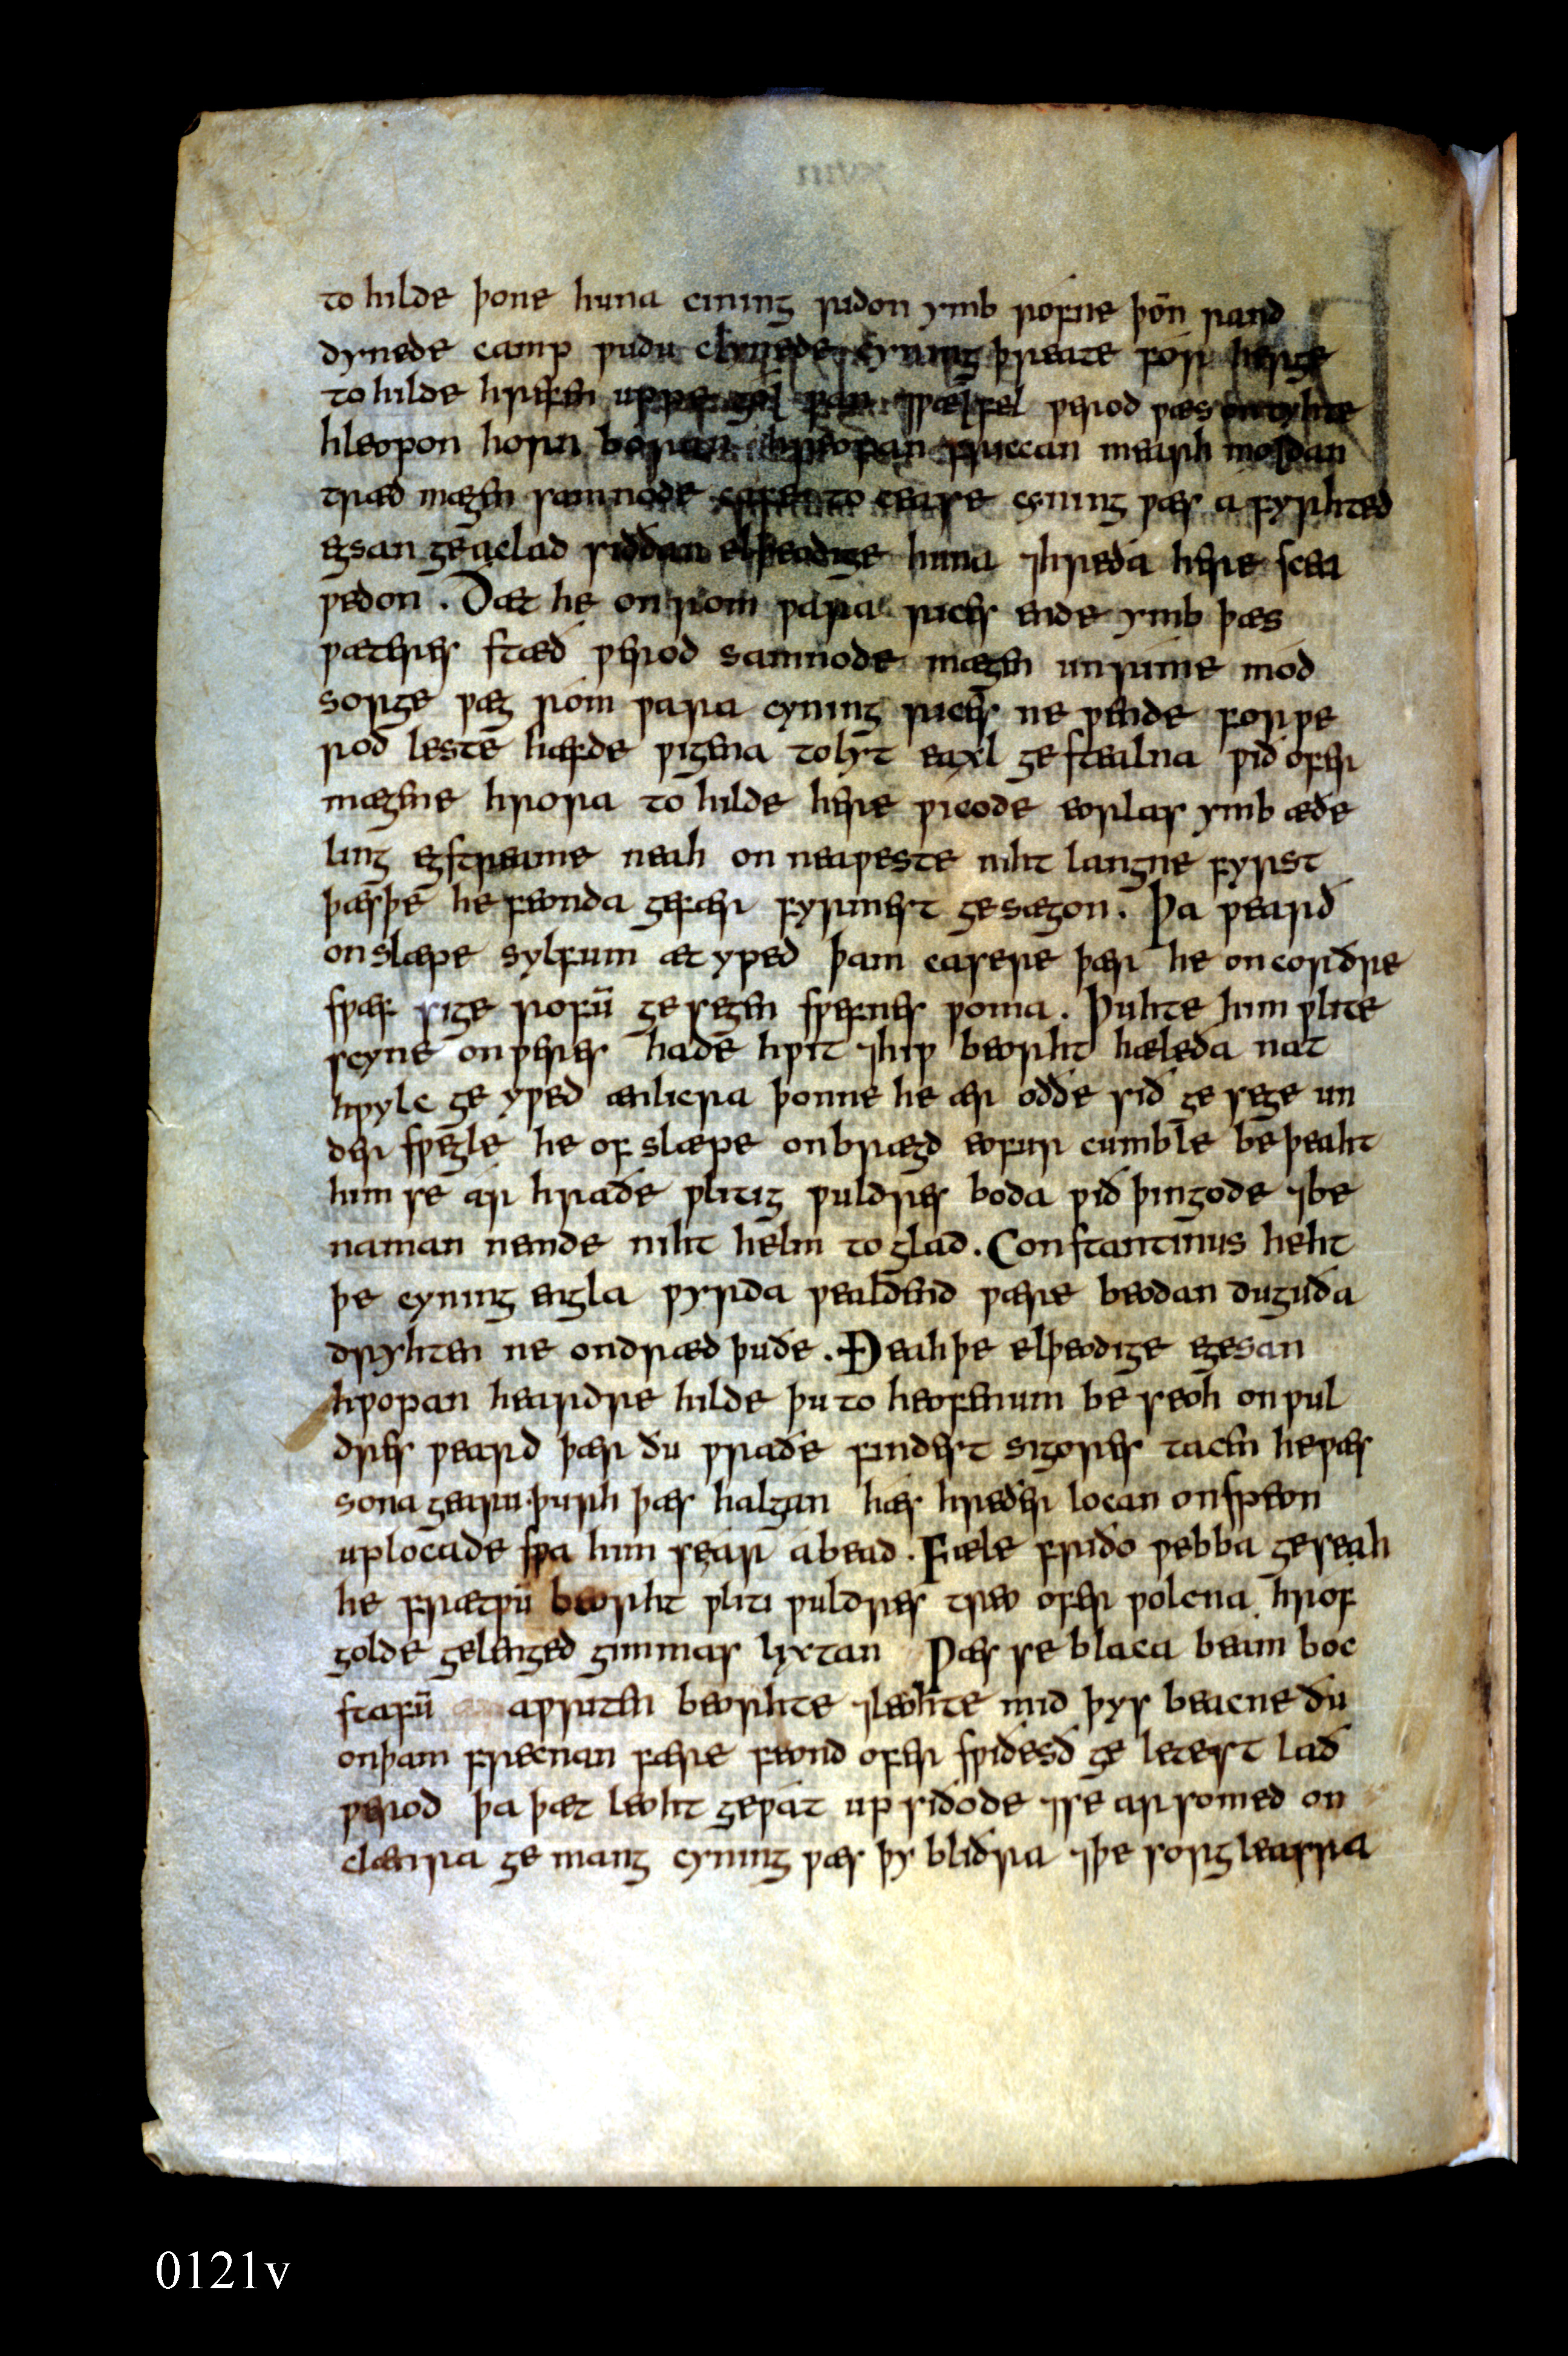 to hilde þone huna cining ridon ymb rofne þoñ rand
dynede camp ƿudu clynede cyning þreate for herge
to hilde hrefen uppe gol ƿan ⁊ƿælfel ƿerod ƿæs on tyhte
hleopon horn boran hreopan friccan mearh moldan
træd mægen samnode cafe to cease cyning ƿæs a fyrhted
egsan geaclad siððan elþeodige huna ⁊hreða here scea
ƿedon . Ðæt he on rom ƿara rices ende ymb þæs
ƿæteres stæð ƿerod samnode mægen unrime mod
sorge ƿæg rom ƿara cyning rices ne ƿende for ƿe
rod leste hæfde ƿigena to lyt eaxl gestealna ƿið ofer
mægene hrora to hilde here ƿicode eorlas ymb æðe
ling egstreame neah on neaƿeste niht langne fyrst
þæs þe he feonda gefær fyrmest gesægon . Þa ƿearð
on slæpe sylfum æt yƿed þam casere þær he on corðre
sƿæf sige rofū ge segen sƿefnes ƿoma . Þuhte him ƿlite
scyne on ƿeres hade hƿit ⁊hiƿ beorht hæleða nat
hƿylc ge yƿed ænlicra þonne he ær oððe sið ge sege un
der sƿegle he of slæpe onbrægd eofur cumble beþeaht
him se ar hraðe ƿlitig ƿuldres boda ƿið þingode ⁊be
naman nemde niht helm to glad . Constantinus heht
þe cyning engla ƿyrda ƿealdend ƿære beodan duguða
dryhten ne ondræd þu ðe . Ðeah þe elþeodige egesan
hƿopan heardre hilde þu to heofenum be seoh on ƿul
dres ƿeard þær ðu ƿraðe findest sigores tacen he ƿæs
sona gearu þurh þæs halgan hæs hreðer locan onspeon
up locade sƿa him se ar abead . Fæle friðo ƿebba geseah
he frætƿū beorht ƿliti ƿuldres treo ofer ƿolcna hrof
golde gelenged gimmas lixtan Ƿæs se blaca beam boc
stafū aƿriten beorhte ⁊leohte mid þys beacne ðu
on þam frecnan fære feond ofer sƿiðesð ge letest lað
ƿerod þa þæt leoht geƿat up siðode ⁊se ar somed on
clænra ge mang cyning ƿæs þy bliðra ⁊þe sorgleasra
0121v